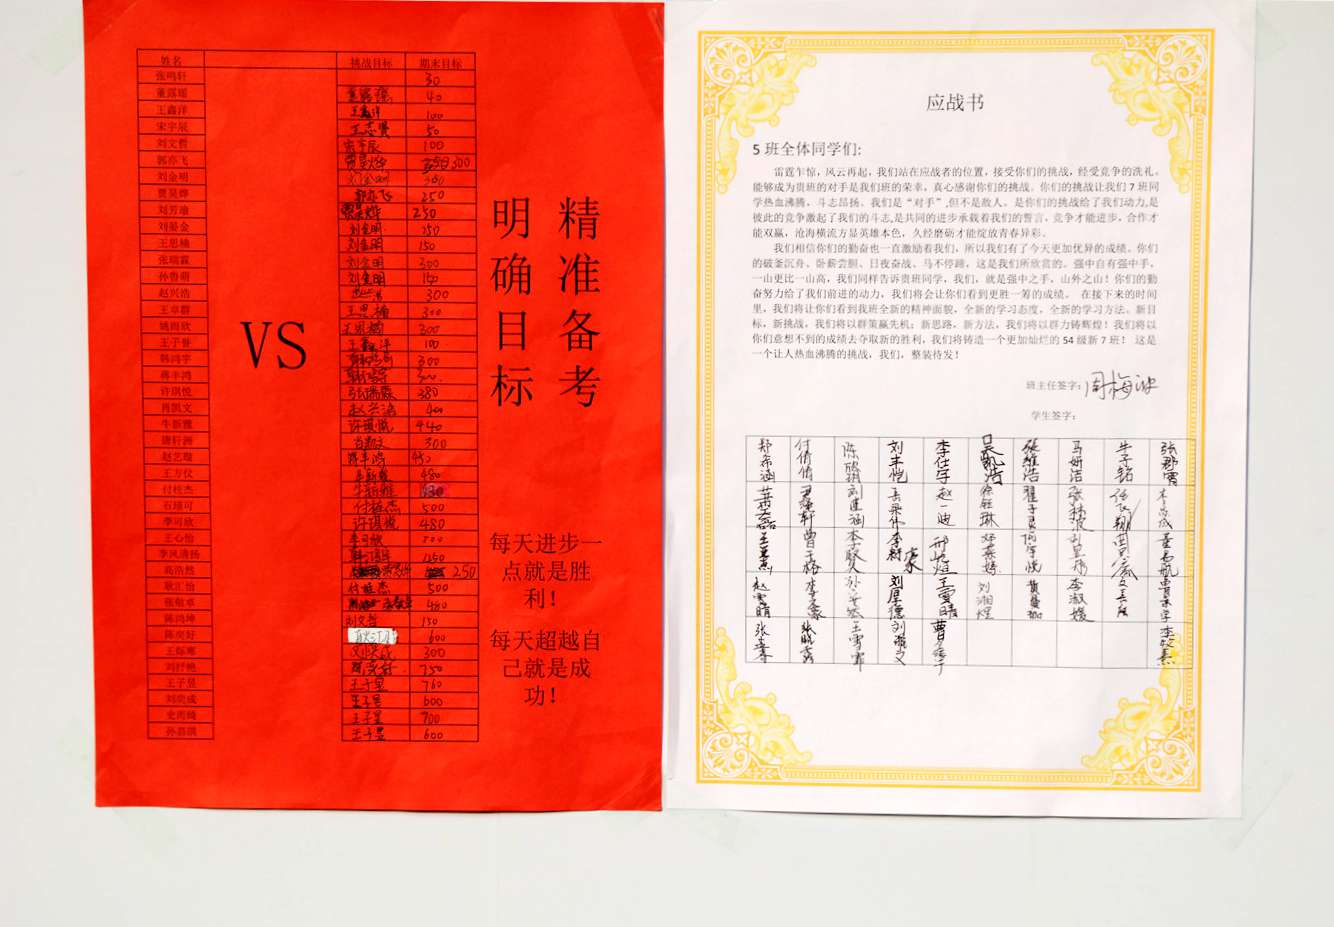 姓名 挑战目标 期末目标
张鸣轩 30
董露瑶 董露瑶 40
王鑫洋 王鑫洋 100
宋宇辰 王志贤 50
刘文哲 宋宇辰 100
郭亦飞 贾昊烨 300
刘金明 300
贾昊烨 郭亦飞 250
刘芳瑜 贾昊烨 250
刘晏金 刘金明 150
王思楠 刘金明 150
张瑞霖 刘金明 300
孙鲁萌 刘金明 140
赵兴浩 300
王卓群 王思楠 300
姚雨欣 王思楠 300
王子誉 王鑫洋 100
韩鸿宇 300
蒋丰鸿
许琪悦 张瑞霖 380
肖凯文 赵兴浩 400
牛新雅 许琪悦 440
唐轩洲 肖凯文 300
赵艺璇 蒋丰鸿 450
王方仪 牛新雅 480
付桂杰 牛新雅
石瑾可 付桂杰 500
李可欣 许琪悦 480
王心怡 李可欣 500
李风清扬
高浩然 250
耿汇怡 付桂杰 500
张郁卓 480
陈鸿坤 刘文哲 150
陈奕好 600
王烁骞 300
刘抒艳 750
王子昱 王子昱 760
刘奕成 王子昱 600
史雨绮 王子昱 700
孙嘉琪 王子昱 600
VS
精准备考
明确目标
每天进步一
点就是胜
利！
每天超越自
己就是成
功！
应战书
5 班全体同学们:
雷霆乍惊，风云再起，我们站在应战者的位置，接受你们的挑战，经受竞争的洗礼。
能够成为贵班的对手是我们班的荣幸，真心感谢你们的挑战。你们的挑战让我们 7 班同
学热血沸腾，斗志昂扬。我们是“对手”,但不是敌人。是你们的挑战给了我们动力,是
彼此的竞争激起了我们的斗志,是共同的进步承载着我们的誓言，竞争才能进步，合作才
能双赢，沧海横流方显英雄本色，久经磨砺才能绽放青春异彩。
我们相信你们的勤奋也一直激励着我们，所以我们有了今天更加优异的成绩。你们
的破釜沉舟、卧薪尝胆、日夜奋战、马不停蹄，这是我们所欣赏的。强中自有强中手，
一山更比一山高，我们同样告诉贵班同学，我们，就是强中之手，山外之山！你们的勤
奋努力给了我们前进的动力，我们将会让你们看到更胜一筹的成绩。 在接下来的时间
里，我们将让你们看到我班全新的精神面貌，全新的学习态度，全新的学习方法。新目
标，新挑战，我们将以群策赢先机；新思路，新方法，我们将以群力铸辉煌！我们将以
你们意想不到的成绩去夺取新的胜利，我们将铸造一个更加灿烂的 54 级新 7 班！ 这是
一个让人热血沸腾的挑战，我们，整装待发！
班主任签字：周梅波
学生签字：
郑希涵 付倩倩 陈欣玥 刘丰恺 李仕宇 吴凯浩 张维浩 马妍洁 牛子铭 张郡霄
赵一迪 徐钰琳 翟子灵
曹子格 邓森婷 何宇悦
赵雪晴 刘厚德 王雪晴 刘湘煜 李淑媛
王雪霏